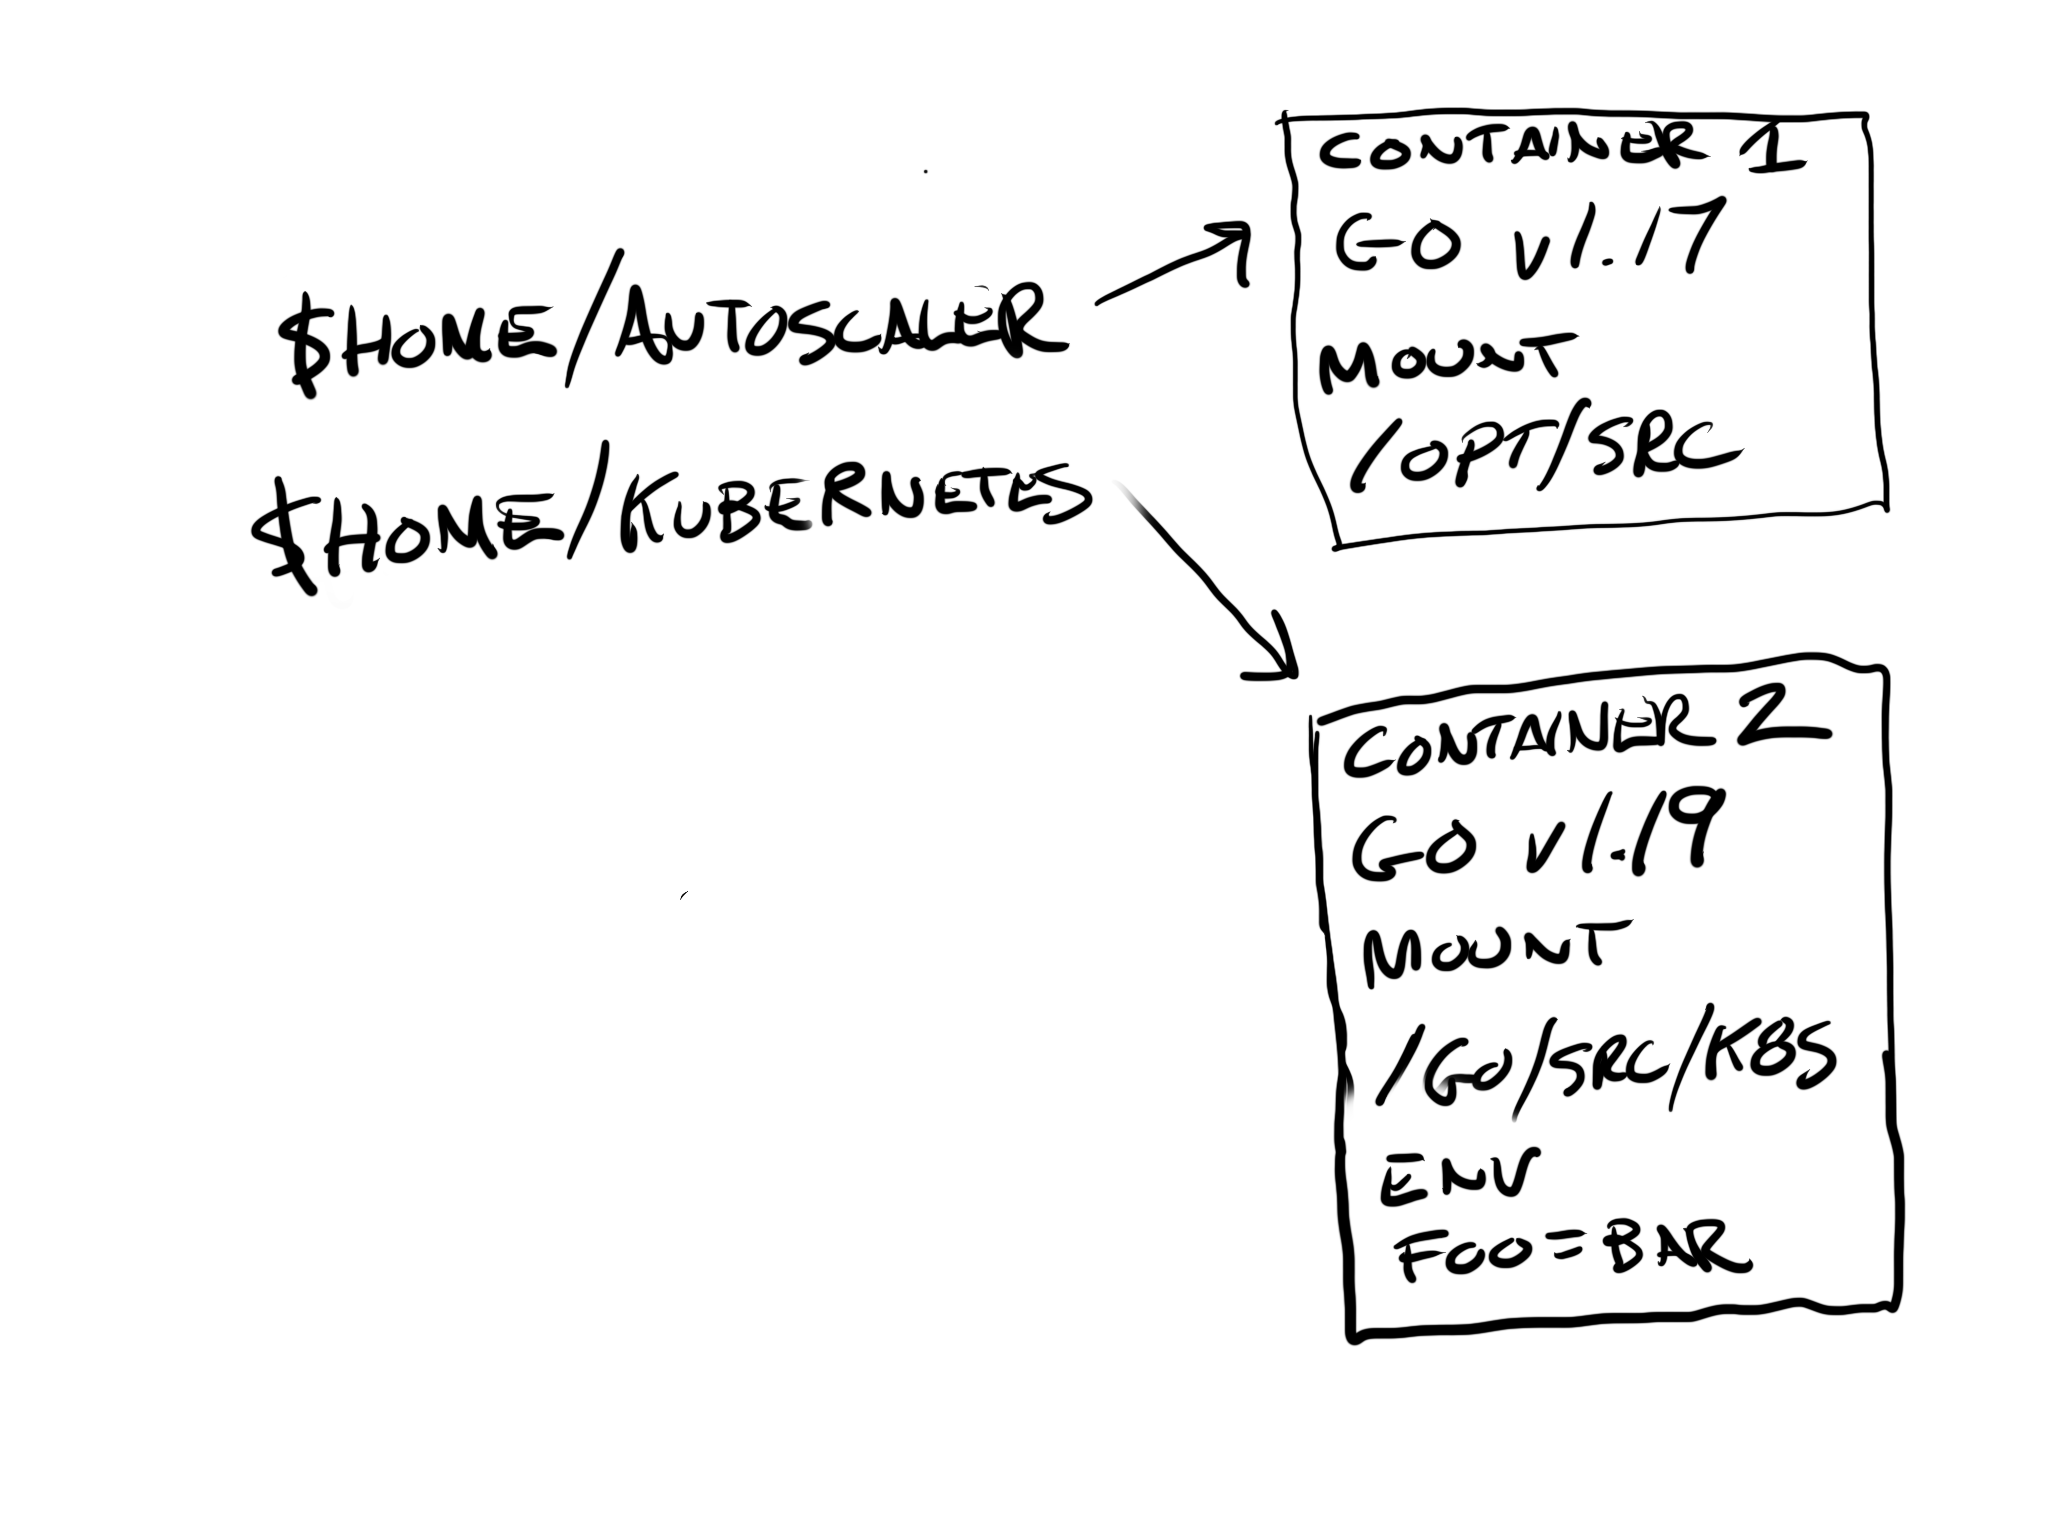 $HOME/AUTOSCALER
$HOME/KUBERNETES
CONTAINER 1
GO v1.17
MOUNT
/OPT/SRC
CONTAINER 2
GO v1.19
MOUNT
/GO/SRC/K8S
ENV
FOO=BAR